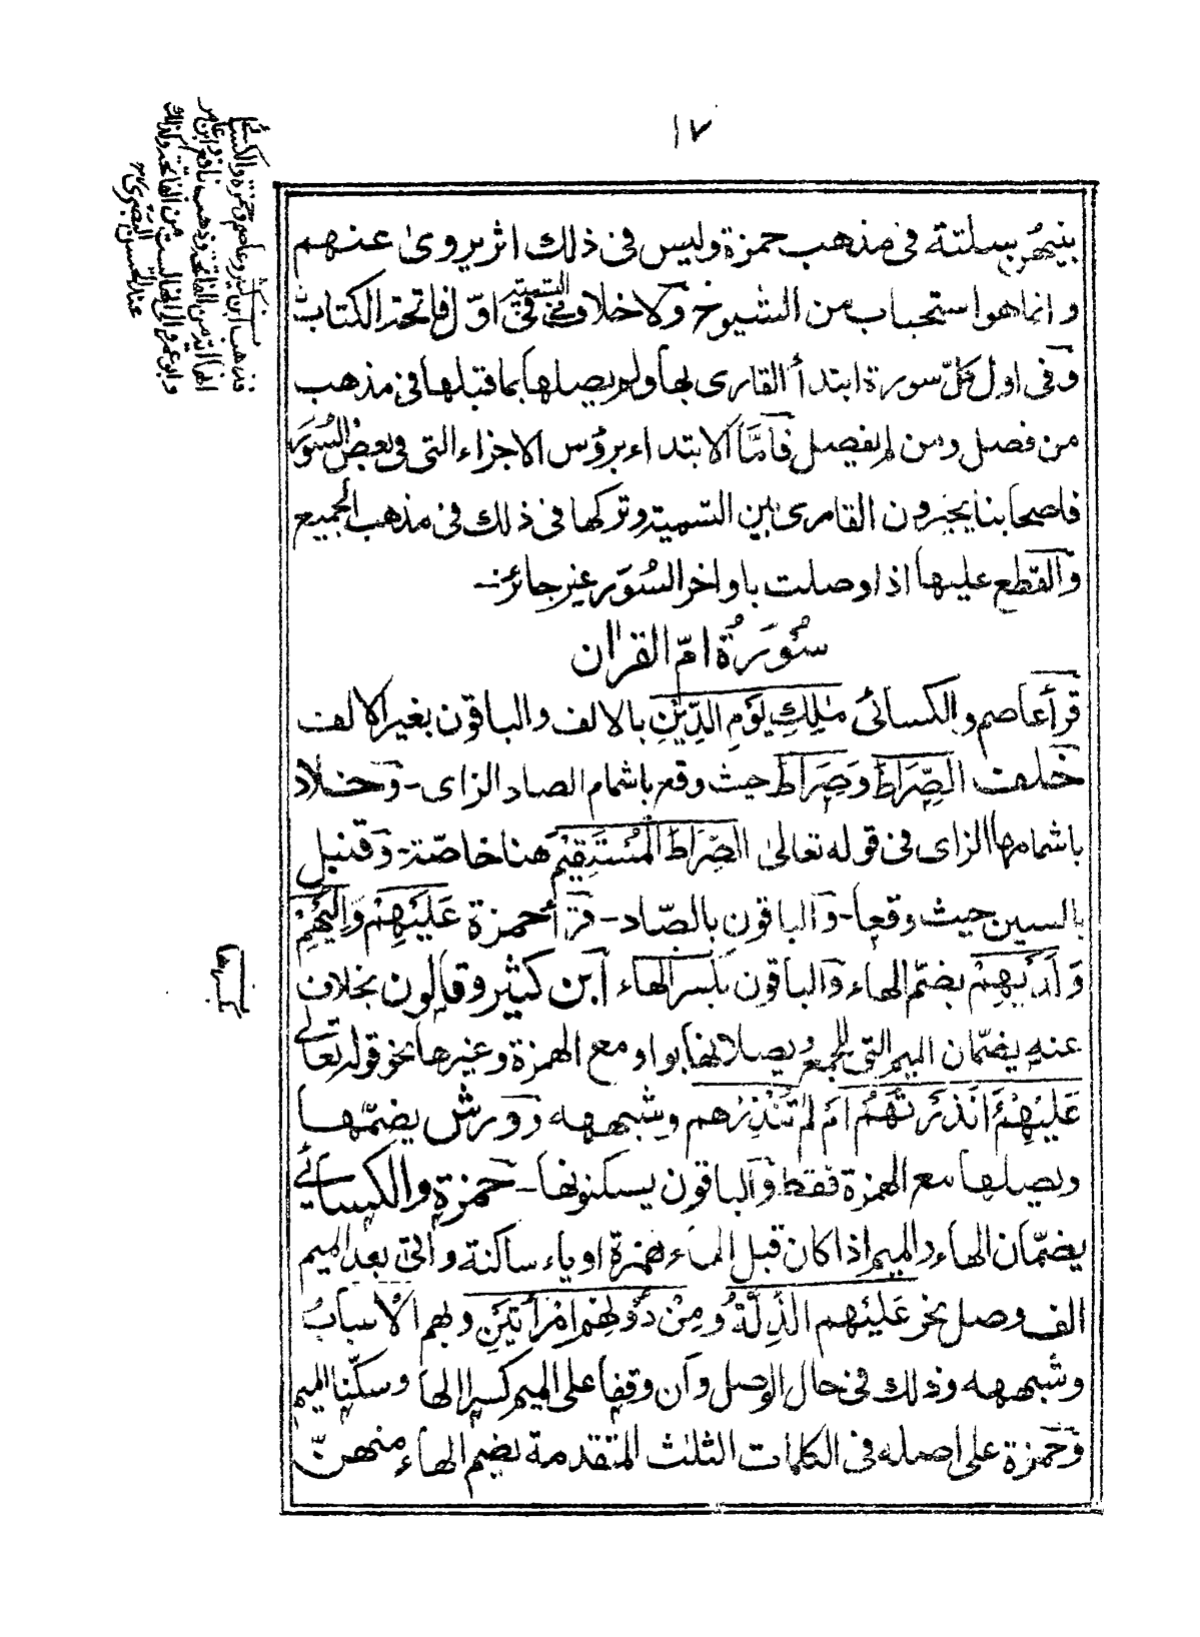 ١٧
بينهن بسكتة فى مذهب حمزة وليس فى ذلك اثر يروىٰ عنهم
وانما هو استحباب من الشيوخ ولا خلاف فى التسمية فى اوّل فاتحة الكتاب
وفى اول كلّ سورة ابتدأ القارى بها ولم يصلها بما قبلها فى مذهب
من فصل ومن لم يفصل فأمّا الابتداء برؤس الاجزاء التى فى بعض السُّوَر
فاصحابنا يخيرون القارى بين التسمية وتركها فى ذلك فى مذهب الجميع
والقطع عليها اذا وصلت باواخر السُّوَر غير جائز-
سُوۡرَةُ امّ القراٰن
قرأ عاصم والكسائى مٰلِكِ يَوْمِ الدِّيْنِ بالالف والباقون بغير الالف
خلف الصِّرَاطَ وَصِرَاطَ حيث وقع باشمام الصاد الزاى- وخلاد
باشمامها الزاى فى قوله تعالىٰ الصِّرَاطَ الْمُسْتَقِيْمَ هنا خاصّة- وقنبل
بالسين حيث وقعا- والباقون بالصّاد- قرأ حمزة عَلَيْهِمْ وَاِلَيْهِمْ
وَلَدَيْهِمْ بضمّ الهاء والباقون بكسر الهاء ابن كثير وقالون بخلاف
عنه يضمّان الميم التى للجمع ويصلانها بواو مع الهمزة وغيرها نحو قوله تعالىٰ
عَلَيْهِمْ ءَاَنْذَرْتَهُمْ اَمْ لَمْ تُنْذِرْهم وشبهه وورش يضمّها
ويصلها مع الهمزة فقط والباقون يسكنونها- حمزة والكسائى
يضمّان الهاء والميم اذا كان قبل الهاء كسرة او ياء ساكنة واتى بعد الميم
الف وصل نحو عَلَيْهِم الذِّلَّةُ وَمِنْ دُوْنِهِمُ امْرَأَتَيْنِ وبهم الْاَسبابُ
وشبهه وذلك فى حال الوصل وان وقفا على الميم كسرا الهاء وسكّنا الميم
وحمزة على اصله فى الكلمات الثلٰث المتقدمة بضم الهاء منهنّ
فذهب ابن كثير وعاصم وحمزة والكسائى
انها اٰية من الفاتحة وذهب نافع وابن عامر
وابو عمرو الى انها ليست من الفاتحة وكذلك
عند الحسن البصرى ١٢